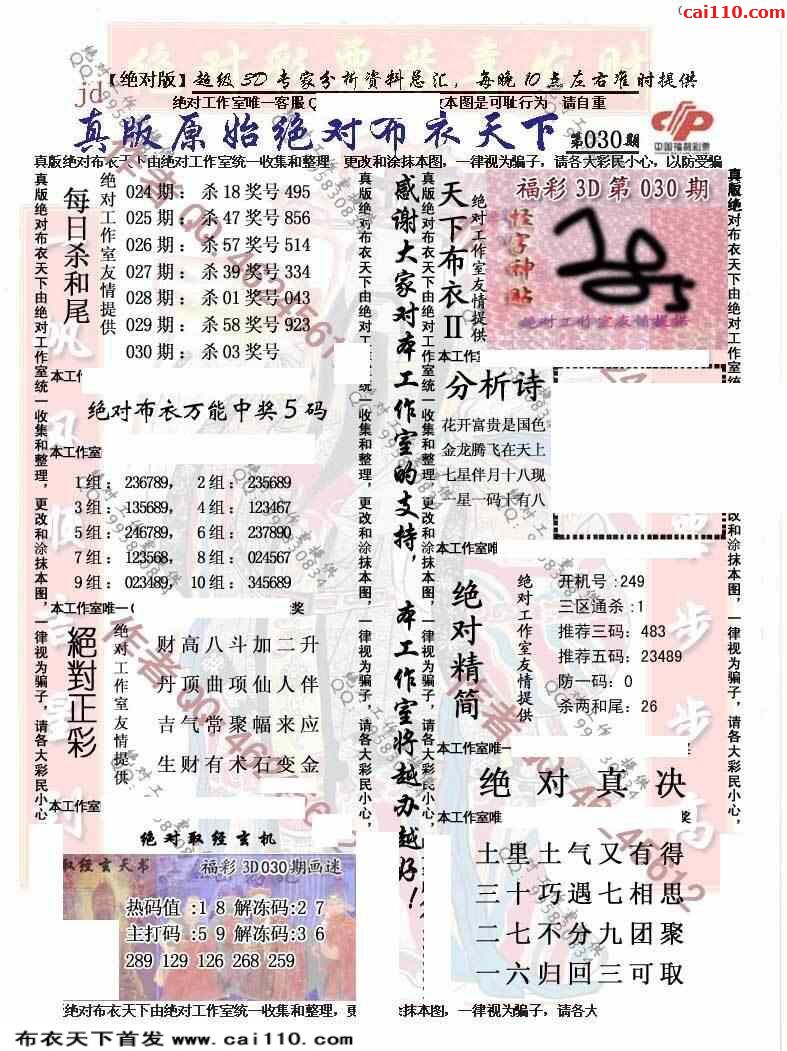 cai110.com
【绝对版】超级3D专家分析资料总汇，每晚10点左右准时提供
jd
绝对工作室唯一客服Q
本图是可耻行为 请自重
真版原始绝对布衣天下
第030期
中国福利彩票
真版绝对布衣天下由绝对工作室统一收集和整理 更改和涂抹本图，一律视为骗子，请各大彩民小心，以防受骗
真版绝对布衣天下由绝对工作室统一收集和整理，更改和涂抹本图，一律视为骗子，请各大彩民小心，
每日杀和尾
绝对工作室友情提供
024期：杀18奖号495
025期：杀47奖号856
026期：杀57奖号514
027期：杀39奖号334
028期：杀01奖号043
029期：杀58奖号923
030期：杀03奖号
本工作
绝对布衣万能中奖5码
本工作室
1组：236789， 2组：235689
3组：135689， 4组：123467
5组：246789， 6组：237890
7组：123568， 8组：024567
9组：023489， 10组：345689
本工作室唯一(
奖
絕對正彩
绝对工作室友情提供
财高八斗加二升
丹顶曲项仙人伴
吉气常聚幅来应
生财有术石变金
本工作室
绝对取经玄机
取经玄天书
福彩3D030期画谜
热码值:1 8 解冻码:2 7
主打码:5 9 解冻码:3 6
289 129 126 268 259
感谢大家对本工作室的支持，本工作室将越办越好！
天下布衣II
绝对工作室友情提供
福彩3D第030期
怪字神贴
绝对工作室友情提供
本工作室
分析诗
花开富贵是国色
金龙腾飞在天上
七星伴月十八现
一星一码十有八
本工作室唯
绝对精简
绝对工作室友情提供
开机号:249
三区通杀:1
推荐三码：483
推荐五码：23489
防一码：0
杀两和尾：26
本工作室唯一
绝对真决
本工作室唯
奖
土里土气又有得
三十巧遇七相思
二七不分九团聚
一六归回三可取
绝对布衣天下由绝对工作室统一收集和整理，更
涂抹本图，一律视为骗子，请各大
布衣天下首发 www.cai110.com